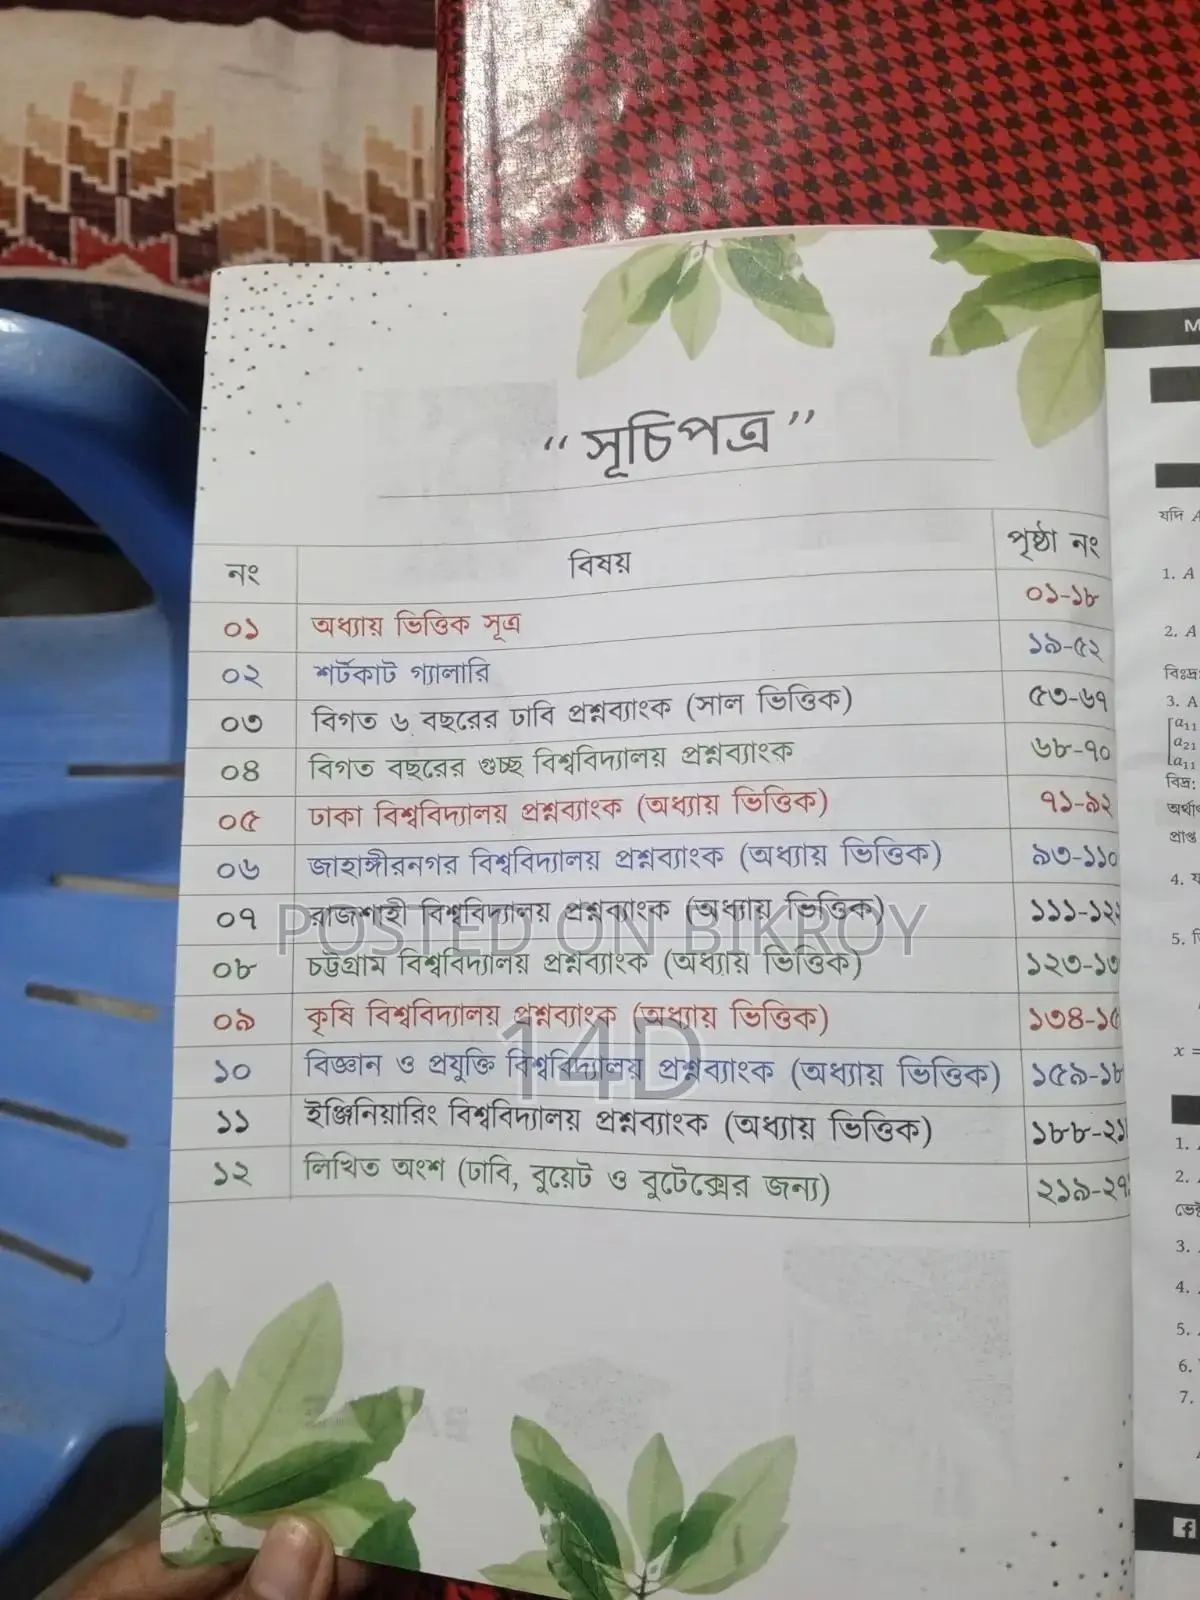 “সূচিপত্র”
নং বিষয় পৃষ্ঠা নং
০১ অধ্যায় ভিত্তিক সূত্র ০১-১৮
০২ শর্টকাট গ্যালারি ১৯-৫২
০৩ বিগত ৬ বছরের ঢাবি প্রশ্নব্যাংক (সাল ভিত্তিক) ৫৩-৬৭
০৪ বিগত বছরের গুচ্ছ বিশ্ববিদ্যালয় প্রশ্নব্যাংক ৬৮-৭০
০৫ ঢাকা বিশ্ববিদ্যালয় প্রশ্নব্যাংক (অধ্যায় ভিত্তিক) ৭১-৯২
০৬ জাহাঙ্গীরনগর বিশ্ববিদ্যালয় প্রশ্নব্যাংক (অধ্যায় ভিত্তিক) ৯৩-১১০
০৭ রাজশাহী বিশ্ববিদ্যালয় প্রশ্নব্যাংক (অধ্যায় ভিত্তিক) ১১১-১২
০৮ চট্টগ্রাম বিশ্ববিদ্যালয় প্রশ্নব্যাংক (অধ্যায় ভিত্তিক) ১২৩-১৩
০৯ কৃষি বিশ্ববিদ্যালয় প্রশ্নব্যাংক (অধ্যায় ভিত্তিক) ১৩৪-১৫
১০ বিজ্ঞান ও প্রযুক্তি বিশ্ববিদ্যালয় প্রশ্নব্যাংক (অধ্যায় ভিত্তিক) ১৫৯-১৮
১১ ইঞ্জিনিয়ারিং বিশ্ববিদ্যালয় প্রশ্নব্যাংক (অধ্যায় ভিত্তিক) ১৮৮-২১
১২ লিখিত অংশ (ঢাবি, বুয়েট ও বুটেক্সের জন্য) ২১৯-২৭
POSTED ON BIKROY
14D
M
যদি A
1. A
2. A
বিঃদ্র:
3. A
a₁₁
a₂₁
a₁₁
বিদ্র:
অর্থাৎ
প্রাপ্ত
4. য
5.
x =
1.
2.
3.
4.
5.
6.
7.